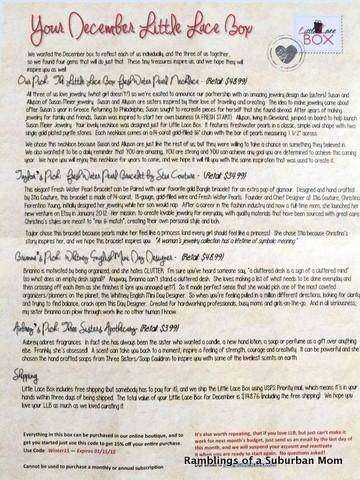 Your December Little Lace Box
Little Lace
BOX
We wanted the December box to reflect each of us individually, and the three of us together,
so we found four gems that will do just that! These tiny treasures inspire us, and we hope they will
inspire you as well.
Our Pick: The Little Lace Box Fresh Water Pearl Necklace - (Retail $48.99)
All three of us love jewelry, (what girl doesn't?) so we're excited to announce our partnership with an amazing jewelry design duo (sisters) Susan and
Allyson of Susan Meier Jewelry. Susan and Allyson are sisters inspired by their love of traveling and creating. The idea to make jewelry came about
after Susan's year in Greece. Returning to Philadelphia, Susan sought to recreate pieces for herself that she found abroad. After years of making
jewelry for family and friends, Susan was inspired to start her own business (A FRESH START). Allyson, living in Cleveland, jumped on board to help launch
Susan Meier Jewelry. Your lovely necklace was designed just for Little Lace Box. It features freshwater pearls in a classic, simple oval shape with two
single gold plated purple stones. Each necklace comes on a 14-carat gold-filled 16" chain with the bar of pearls measuring 1 1/2" across.
We chose this necklace because Susan and Allyson are just like the rest of us, but they were willing to take a chance on something they believed in.
We also wanted it to be a daily reminder that YOU are amazing, YOU are strong and YOU can achieve any goal you are determined to achieve this coming
year. We hope you will enjoy this necklace for years to come, and we hope it will fill you with the same inspiration that was used to create it.
Taylor's Pick: Fresh Water Pearl Bracelet by Stia Couture - (Retail $34.99)
This elegant Fresh Water Pearl Bracelet can be paired with your favorite gold bangle bracelet for an extra pop of glamour. Designed and hand crafted
by Stia Couture, this bracelet is made of 14 carat, 18-gauge, gold-filled wire and Fresh Water Pearls. Founder and Chief Designer of Stia Couture, Christina
Fiorentino Young, initially designed fine jewelry while her son would nap. After a career in the fashion industry and now a full-time mom, she launched her
new venture on Etsy in January 2012. Her mission: to create lovable jewelry for everyday, with quality materials that have been sourced with great care.
Christina's styles are meant to "mix & match", creating their own personal style and bub.
Taylor chose this bracelet because pearls make her feel like a princess (and every girl should feel like a princess). She chose Stia because Christina's
story inspires her, and she hope the bracelet inspires you. "A woman's jewelry collection has a lifetime of symbolic meaning"
Pick: Whitney English Mini Day Designer - (Retail $48.99)
is motivated by being organized, and she hates CLUTTER. I'm sure you've heard someone say, "a cluttered desk is a sign of a cluttered mind"
(so what does an empty desk signal? Anyway, can't stand a cluttered desk. She loves making a list of what needs to be done everyday and
then crossing off each item as she finishes it (are you annoyed yet?). So it made perfect sense that she would pick one of the most coveted
organizers/planners on the planet, the Whitney English Mini Day Designer. So when you're feeling pulled in a million different directions, looking for clarity
and trying to find balance, crack open this Day Designer. Created for hardworking professionals, busy moms and girls-on-the-go. And in all seriousness,
my sister can plow through work like no other human I know.
Aubrey's Pick: Three Sisters Apothecary - (Retail $3.99)
Aubrey adores fragrances. In fact she has always been the sister who wanted a candle, a new hand lotion, a soap or perfume as a gift over anything
else. Frankly, she's obsessed. A scent can take you back to a moment, inspire a feeling of strength, courage and creativity. It can be powerful and she
chose the hand crafted soaps from Three Sisters/Soap Cauldron to inspire you with some of the loveliest scents on earth.
Shipping
Little Lace Box includes free shipping (but somebody has to pay for it), and we ship the Little Lace Box using USPS Priority mail, which means it's in your
hands within three days of being shipped. The total value of your Little Lace Box for December is $148.76 (including the free shipping). We hope you
love your LLB as much as we loved curating it!
Everything in this box can be purchased in our online boutique, and to
get you started just use this code to get 15% off your entire purchase.
Use Code: Winter15 - Expires 01/15/15
Cannot be used to purchase a monthly or annual subscription
It's also worth repeating, that if you love LLB, but just can't make it
work for next month's budget, just send us an email by the last day of
this month, and we will suspend your account and reactivate
it when you are ready to start again. No questions asked!
Ramblings of a Suburban Mom